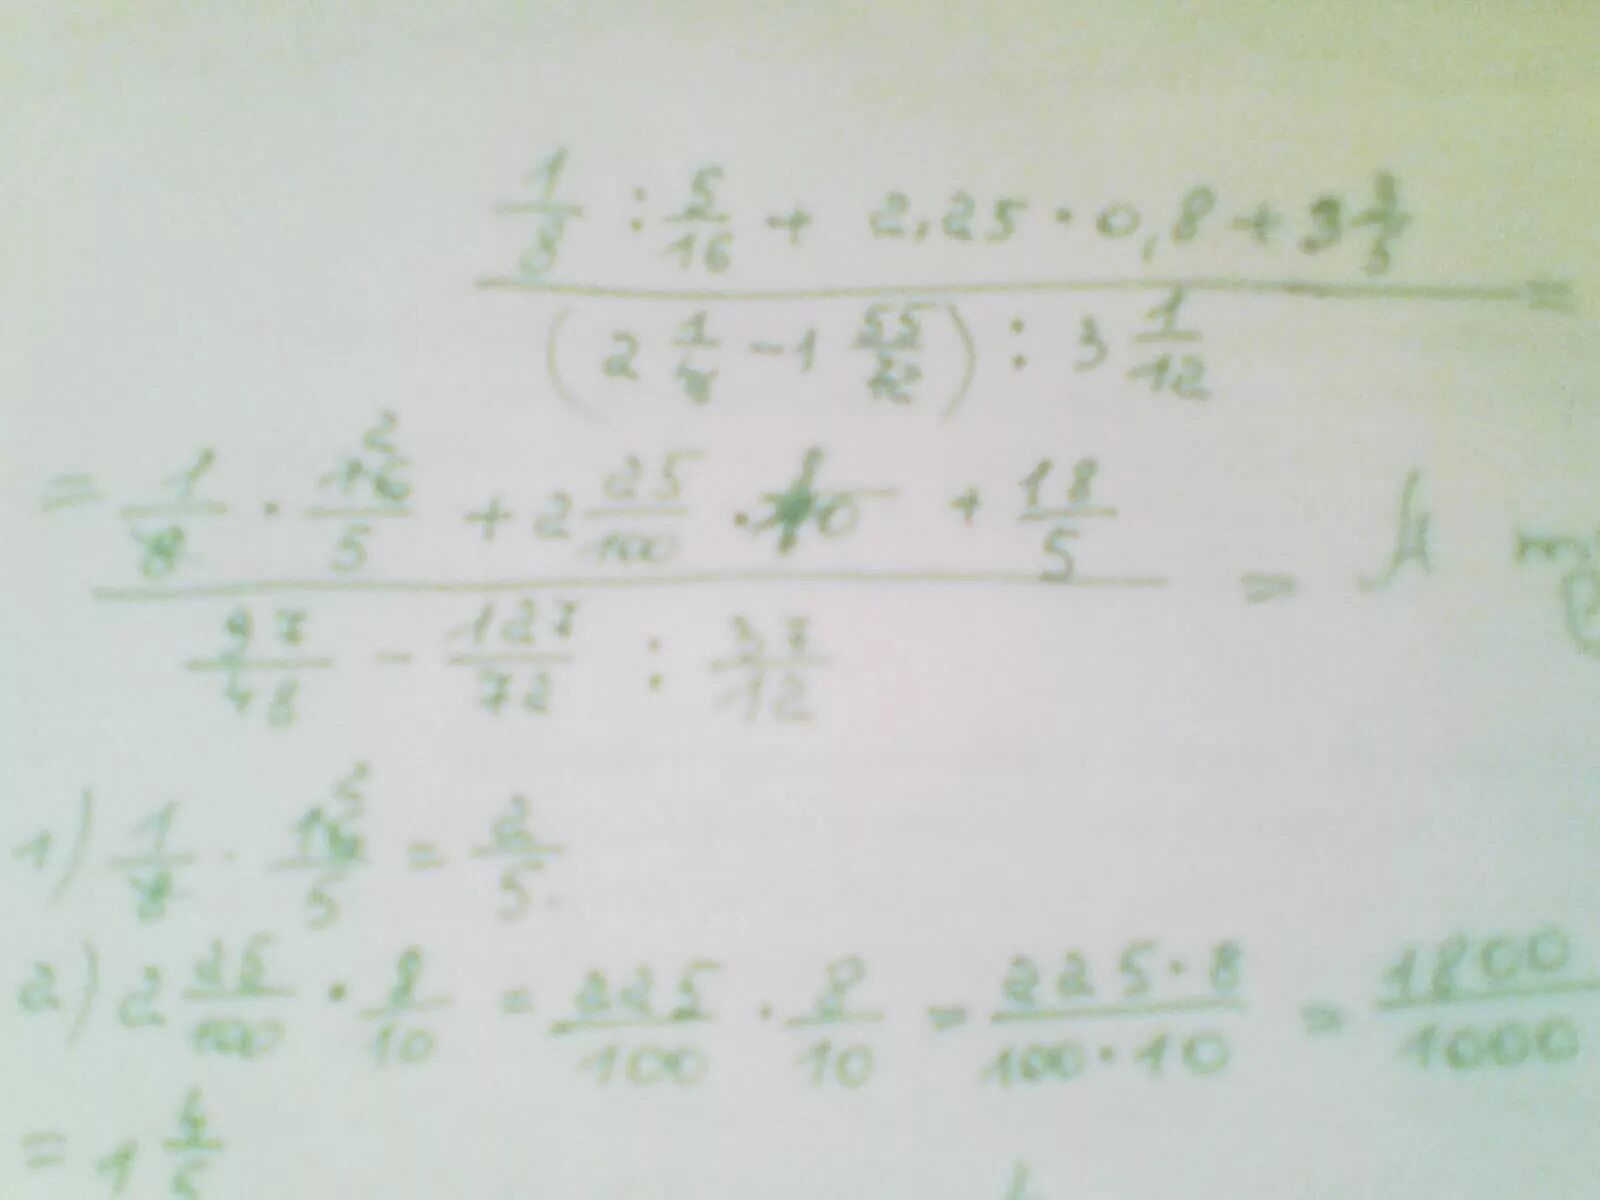 1/8 : 5/16 + 2,25 · 0,8 + 3 3/5 =
(2 1/ - 1 55/72) : 3 1/12
= 1/8 · 16/5 2 + 2 25/100 · + 18/5 =
97/48 - 127/72 : 37/12
1) 1/8 · 16/5 2 = 2/5.
2) 2 25/100 · 8/10 = 225/100 · 8/10 = 225·8/100·10 = 1800/1000
= 1 4/5